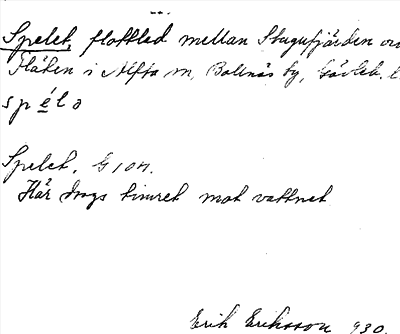 Spelet, flottled mellan Stugufjärden oc
Flåten i Alfta sn, Bollnäs tg, Gävleb. l
spélo
Spelet. G 104.
Här drogs timret mot vattnet
Erik Eriksson 930.